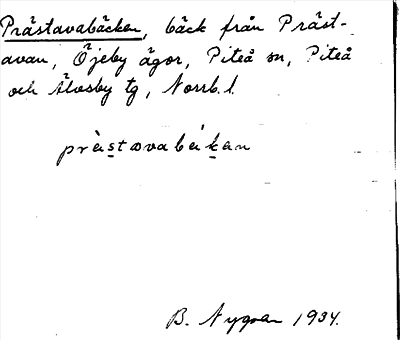 Prästavabäcken, bäck från Präst-
avan, Öjeby ägor, Piteå sn, Piteå
och Älvsby tg, Norrb. l.
prästavabäkan
B. Nygren 1934.